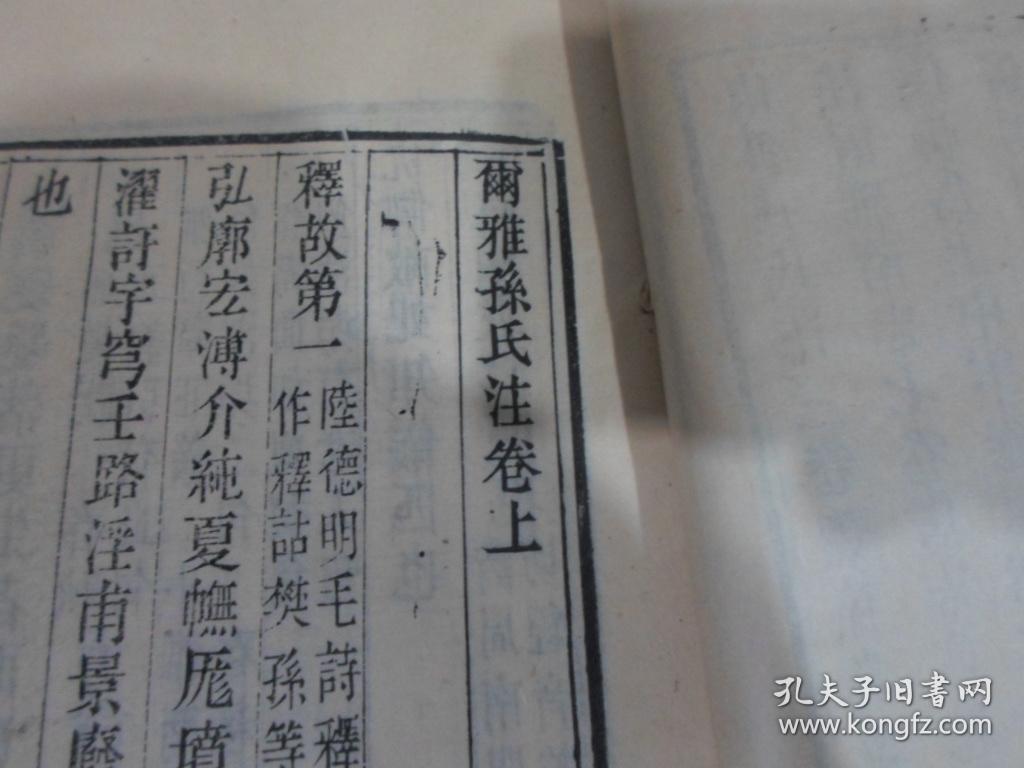 爾雅孫氏注卷上
釋故第一
陸德明毛詩釋
作釋詁樊孫等
弘廓宏溥介純夏幠厖墳
濯訏宇穹壬路淫甫景廢
也
孔夫子旧书网
www.kongfz.com